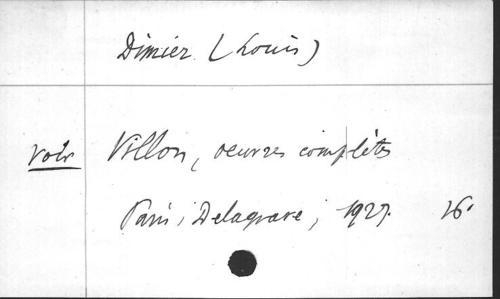 Dimier (Louis)
voir Villon, oeuvres complètes
Paris, Delagrave, 1927. 16°